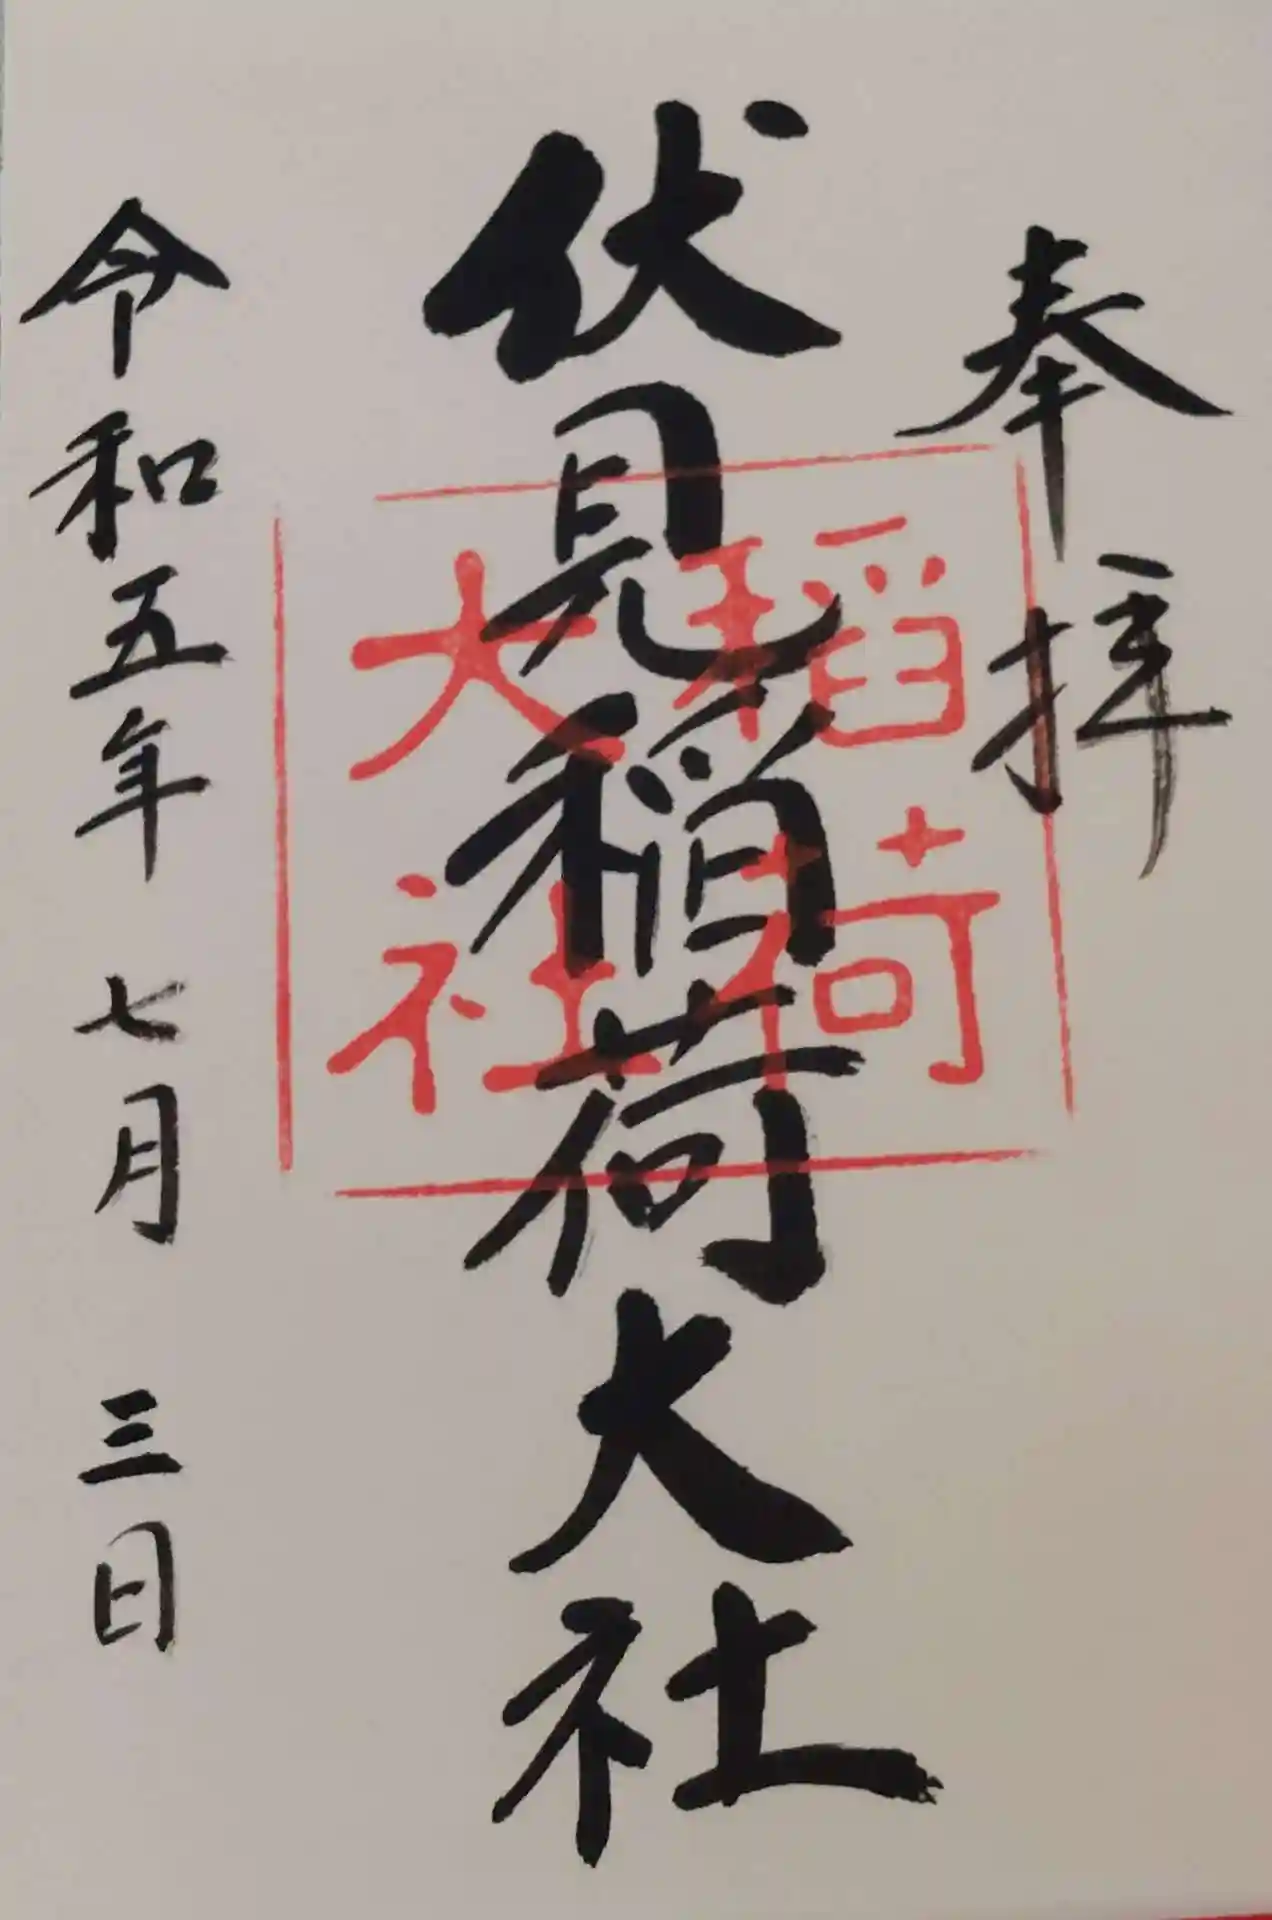 奉拝
伏見稲荷大社
稲荷
大社
令和五年 七月 三日